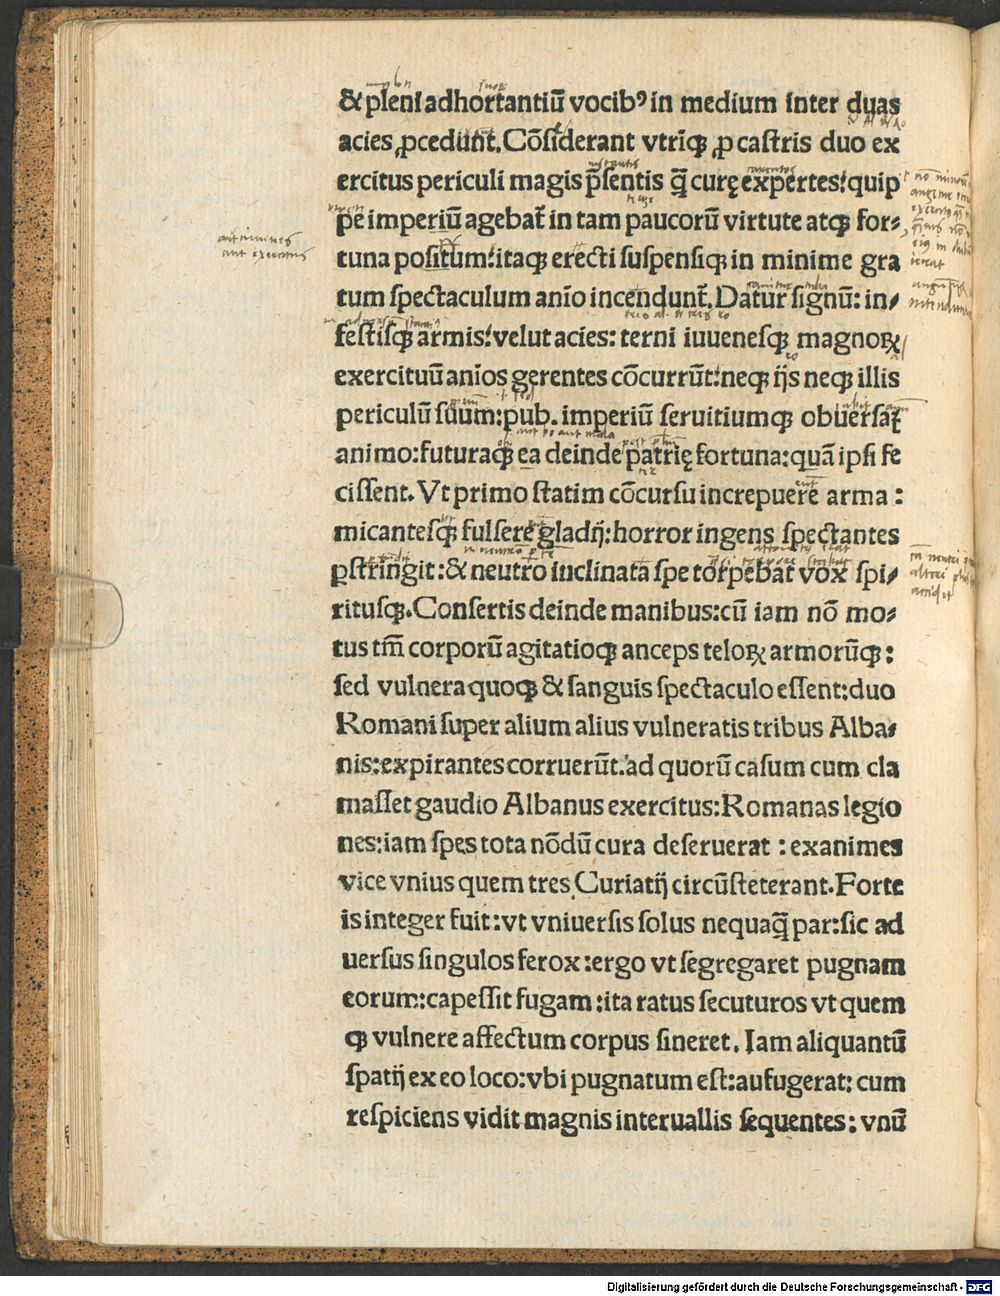 & pleni adhortantiū vocibꝰ in medium inter duas
acies ꝓcedūnt. Cōsiderant vtriqꝫ ꝓ castris duo ex
ercitus periculi magis p̄sentis q̄ curę expertes: quip
pe imperiū agebat᷑ in tam paucorū virtute atqꝫ for⸗
tuna positum: itaqꝫ erecti suspensiqꝫ in minime gra
tum spectaculum anīo incendunt᷑. Datur signū: in⸗
festisqꝫ armis: velut acies: terni iuuenesqꝫ magnoꝝ
exercituū anīos gerentes cōcurrūt: neqꝫ ijs neqꝫ illis
periculū suum: pub. imperiū seruitiumqꝫ obuersat᷑
animo: futuraqꝫ ea deinde patrię fortuna: quā ipsi fe
cissent. Vt primo statim cōcursu increpuere arma:
micantesqꝫ fulsere gladij: horror ingens spectantes
ꝑstringit: & neutro inclinata spe torpebat vox spi⸗
ritusqꝫ. Consertis deinde manibus: cū iam nō mo⸗
tus tm̄ corporū agitatioqꝫ anceps teloꝝ armorūqꝫ:
sed vulnera quoqꝫ & sanguis spectaculo essent: duo
Romani super alium alius vulneratis tribus Alba⸗
nis: expirantes corruerūt. ad quorū casum cum cla
masset gaudio Albanus exercitus: Romanas legio
nes: iam spes tota nōdū cura deseruerat: exanimes
vice vnius quem tres Curiatij circūsteterant. Forte
is integer fuit: vt vniuersis solus nequaq̄ par: sic ad
uersus singulos ferox: ergo vt segregaret pugnam
eorum: capessit fugam: ita ratus secuturos vt quem
qꝫ vulnere affectum corpus sineret. Iam aliquantū
spatij ex eo loco: vbi pugnatum est: aufugerat: cum
respiciens vidit magnis interuallis sequentes: vnū
Digitalisierung gefördert durch die Deutsche Forschungsgemeinschaft - DFG